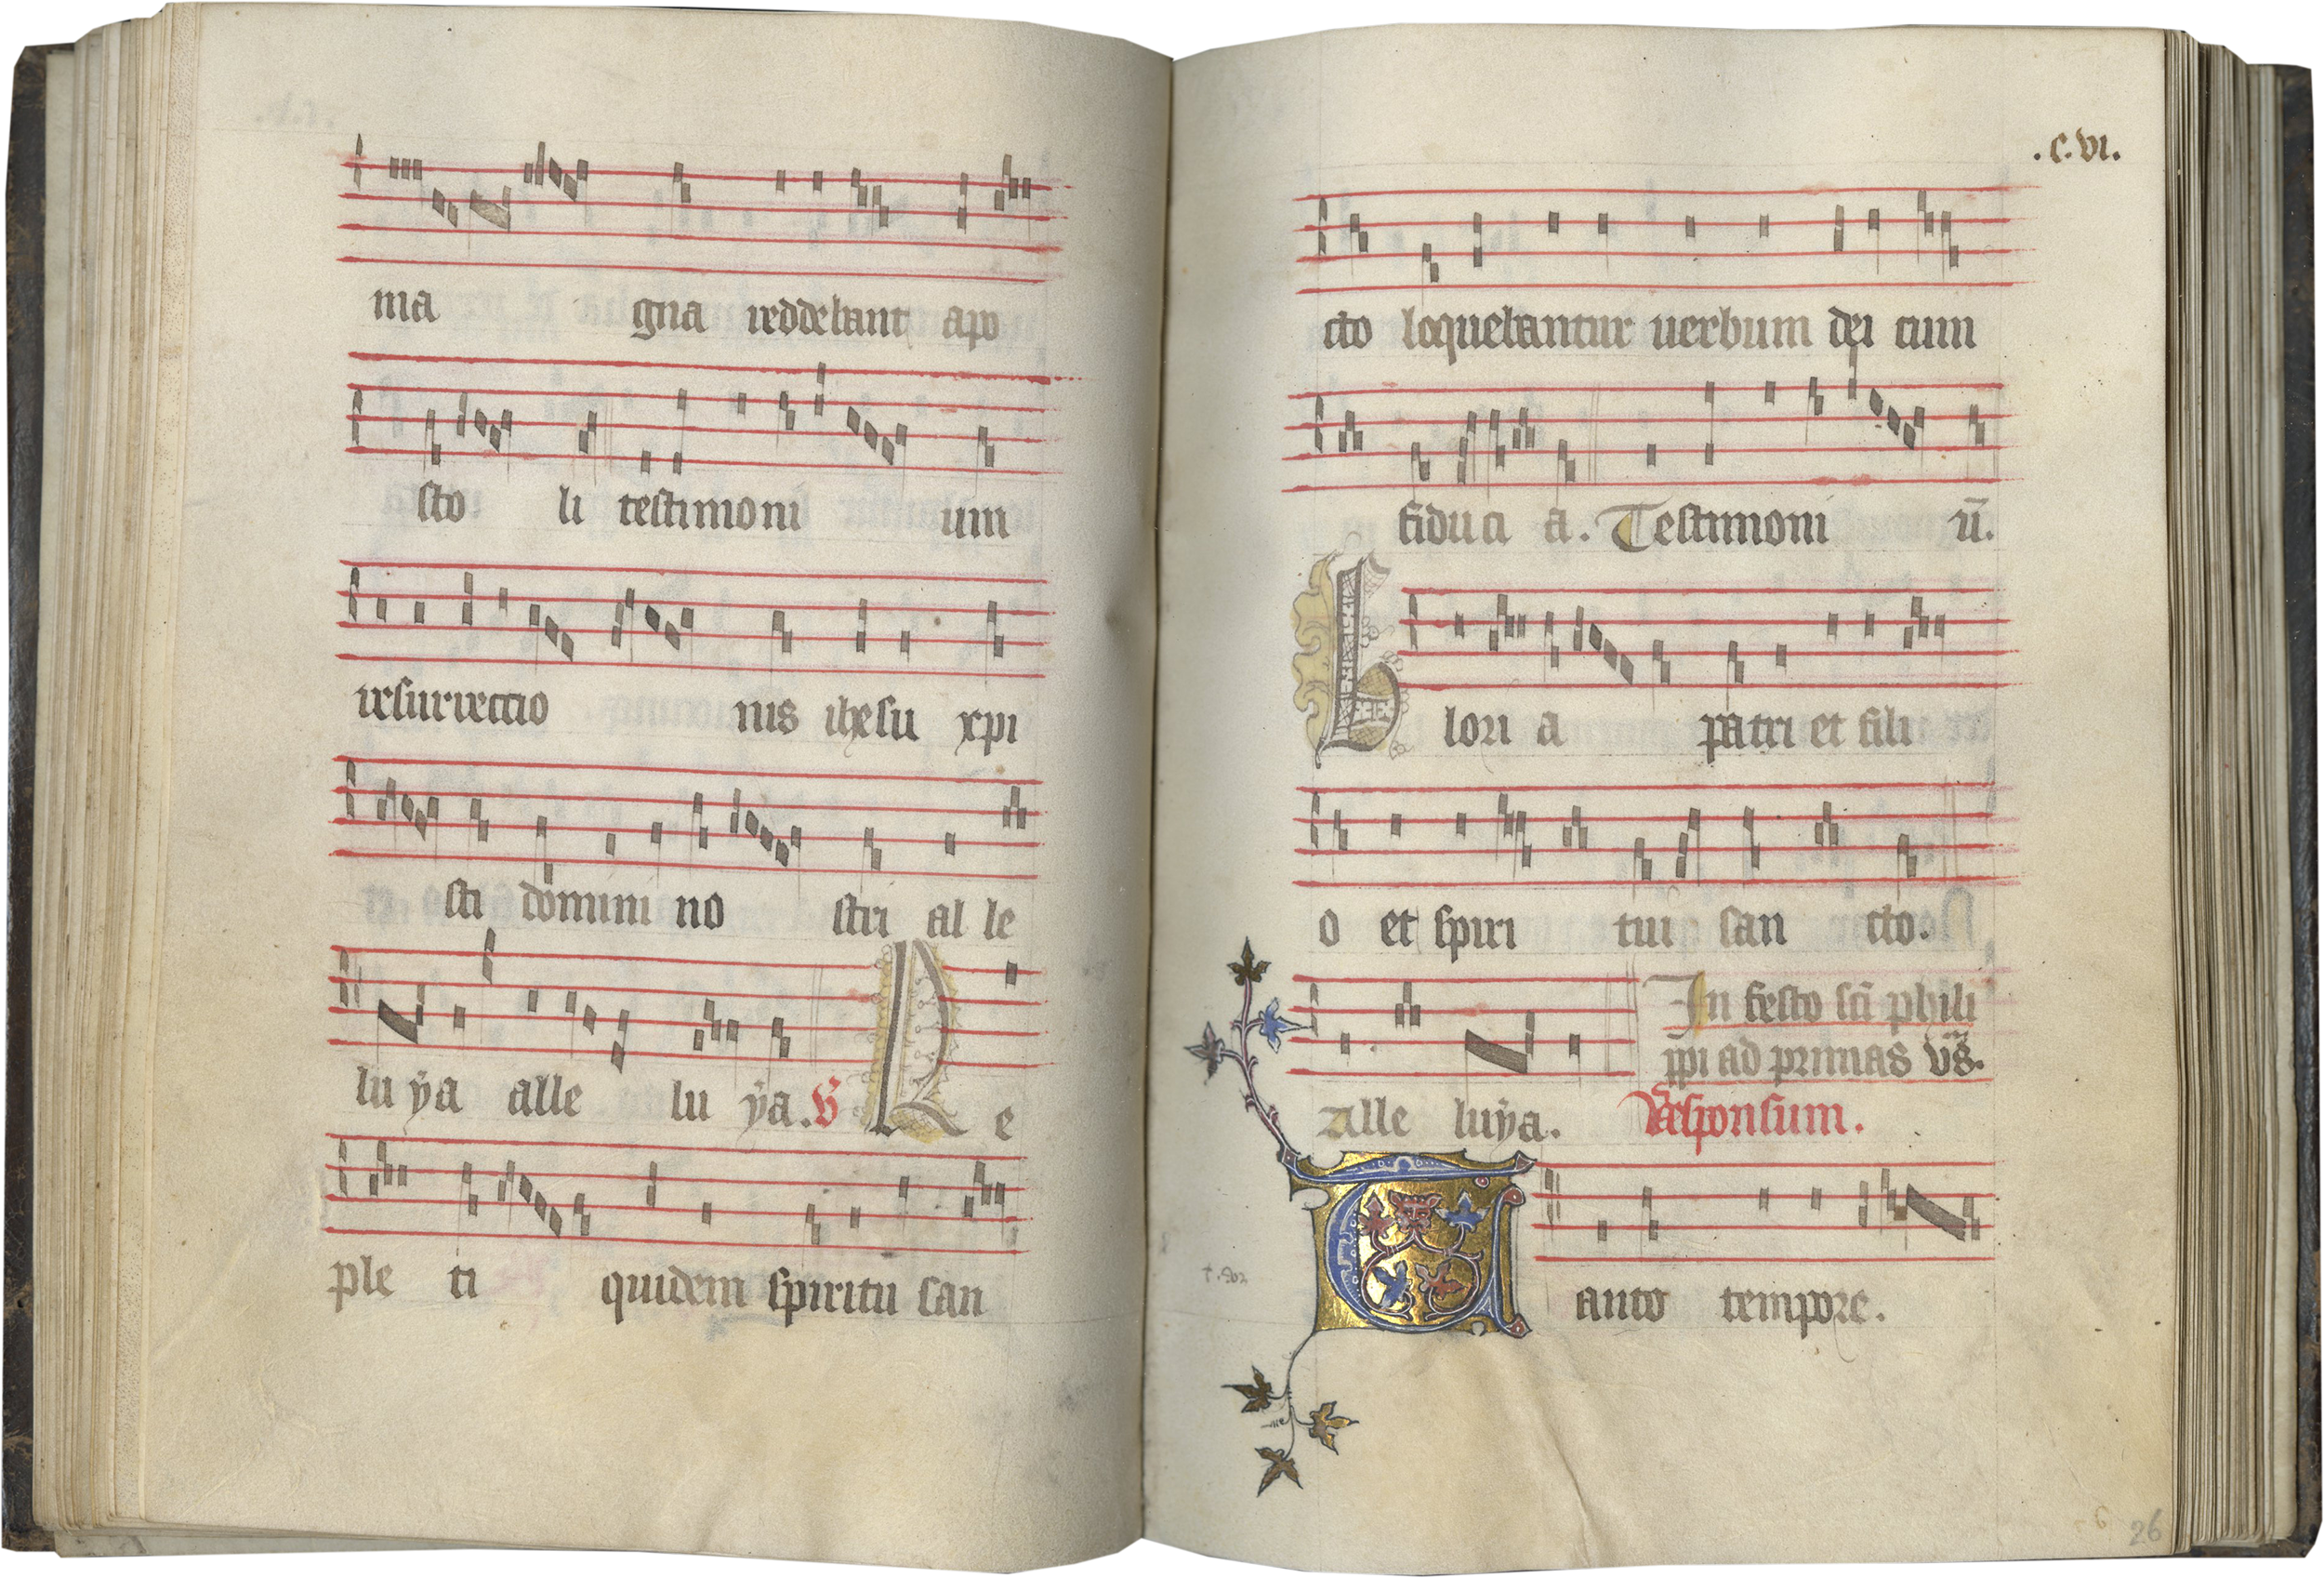 ma gna reddebant apo
sto li testimoni um
resurrectio nis ihesu xpi
sti domini no stri al le
lu ÿa alle lu ÿa. V R e
ple ti quidem spiritu san
.C.VI.
cto loquebantur uerbum dei cum
fiduci a. Testimoni ū.
G lori a patri et fili
o et spiri tui san cto.
In festo sc̄i phili
ppi ad primas vs̄.
Alle luÿa. Responsum.
T anto tempore.
26